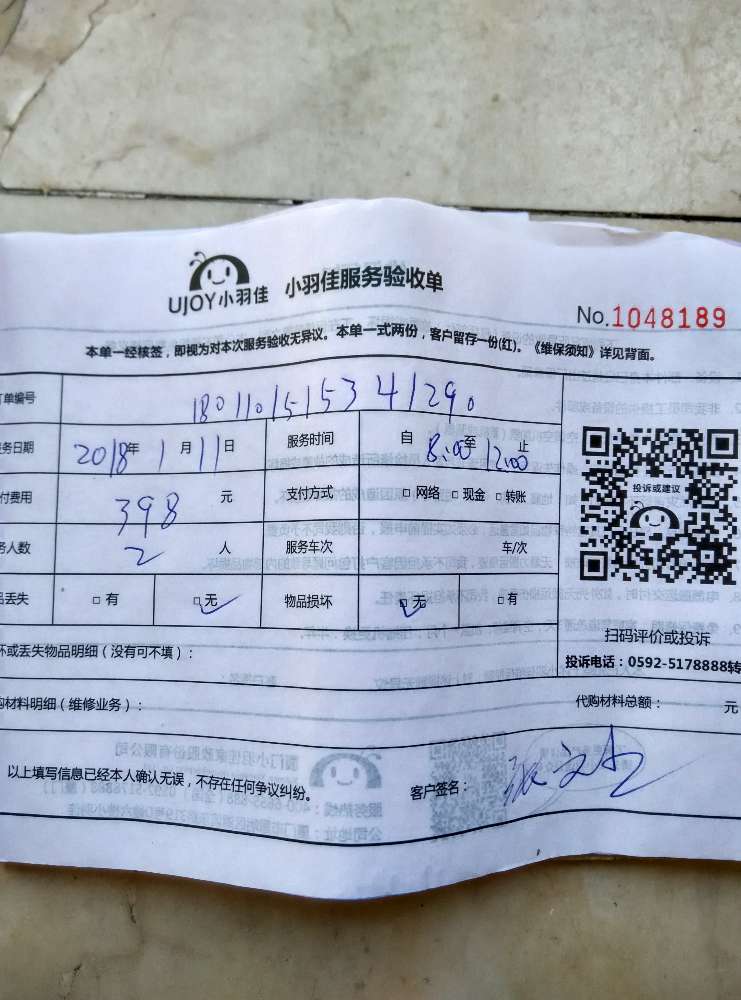 UJOY小羽佳 小羽佳服务验收单
No.1048189
本单一经核签，即视为对本次服务验收无异议。本单一式两份，客户留存一份(红)。《维保须知》详见背面。
订单编号 1801101515341290
务日期 2018年1月11日 服务时间 自8:00至12:00止
付费用 398元 支付方式 □网络 □现金 □转账
务人数 2人 服务车次 车/次
品丢失 □有 □无 物品损坏 □无 □有
投诉或建议
扫码评价或投诉
投诉电话：0592-5178888转
坏或丢失物品明细（没有可不填）：
购材料明细（维修业务）： 代购材料总额： 元
以上填写信息已经本人确认无误，不存在任何争议纠纷。 客户签名：